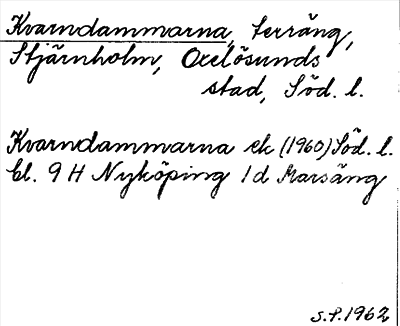 Kvarndammarna, terräng,
Stjärnholm, Oxelösunds
stad, Söd. l.
Kvarndammarna ek (1960) Söd. l.
bl. 9 H Nyköping 1 d Marsäng
S.P. 1962